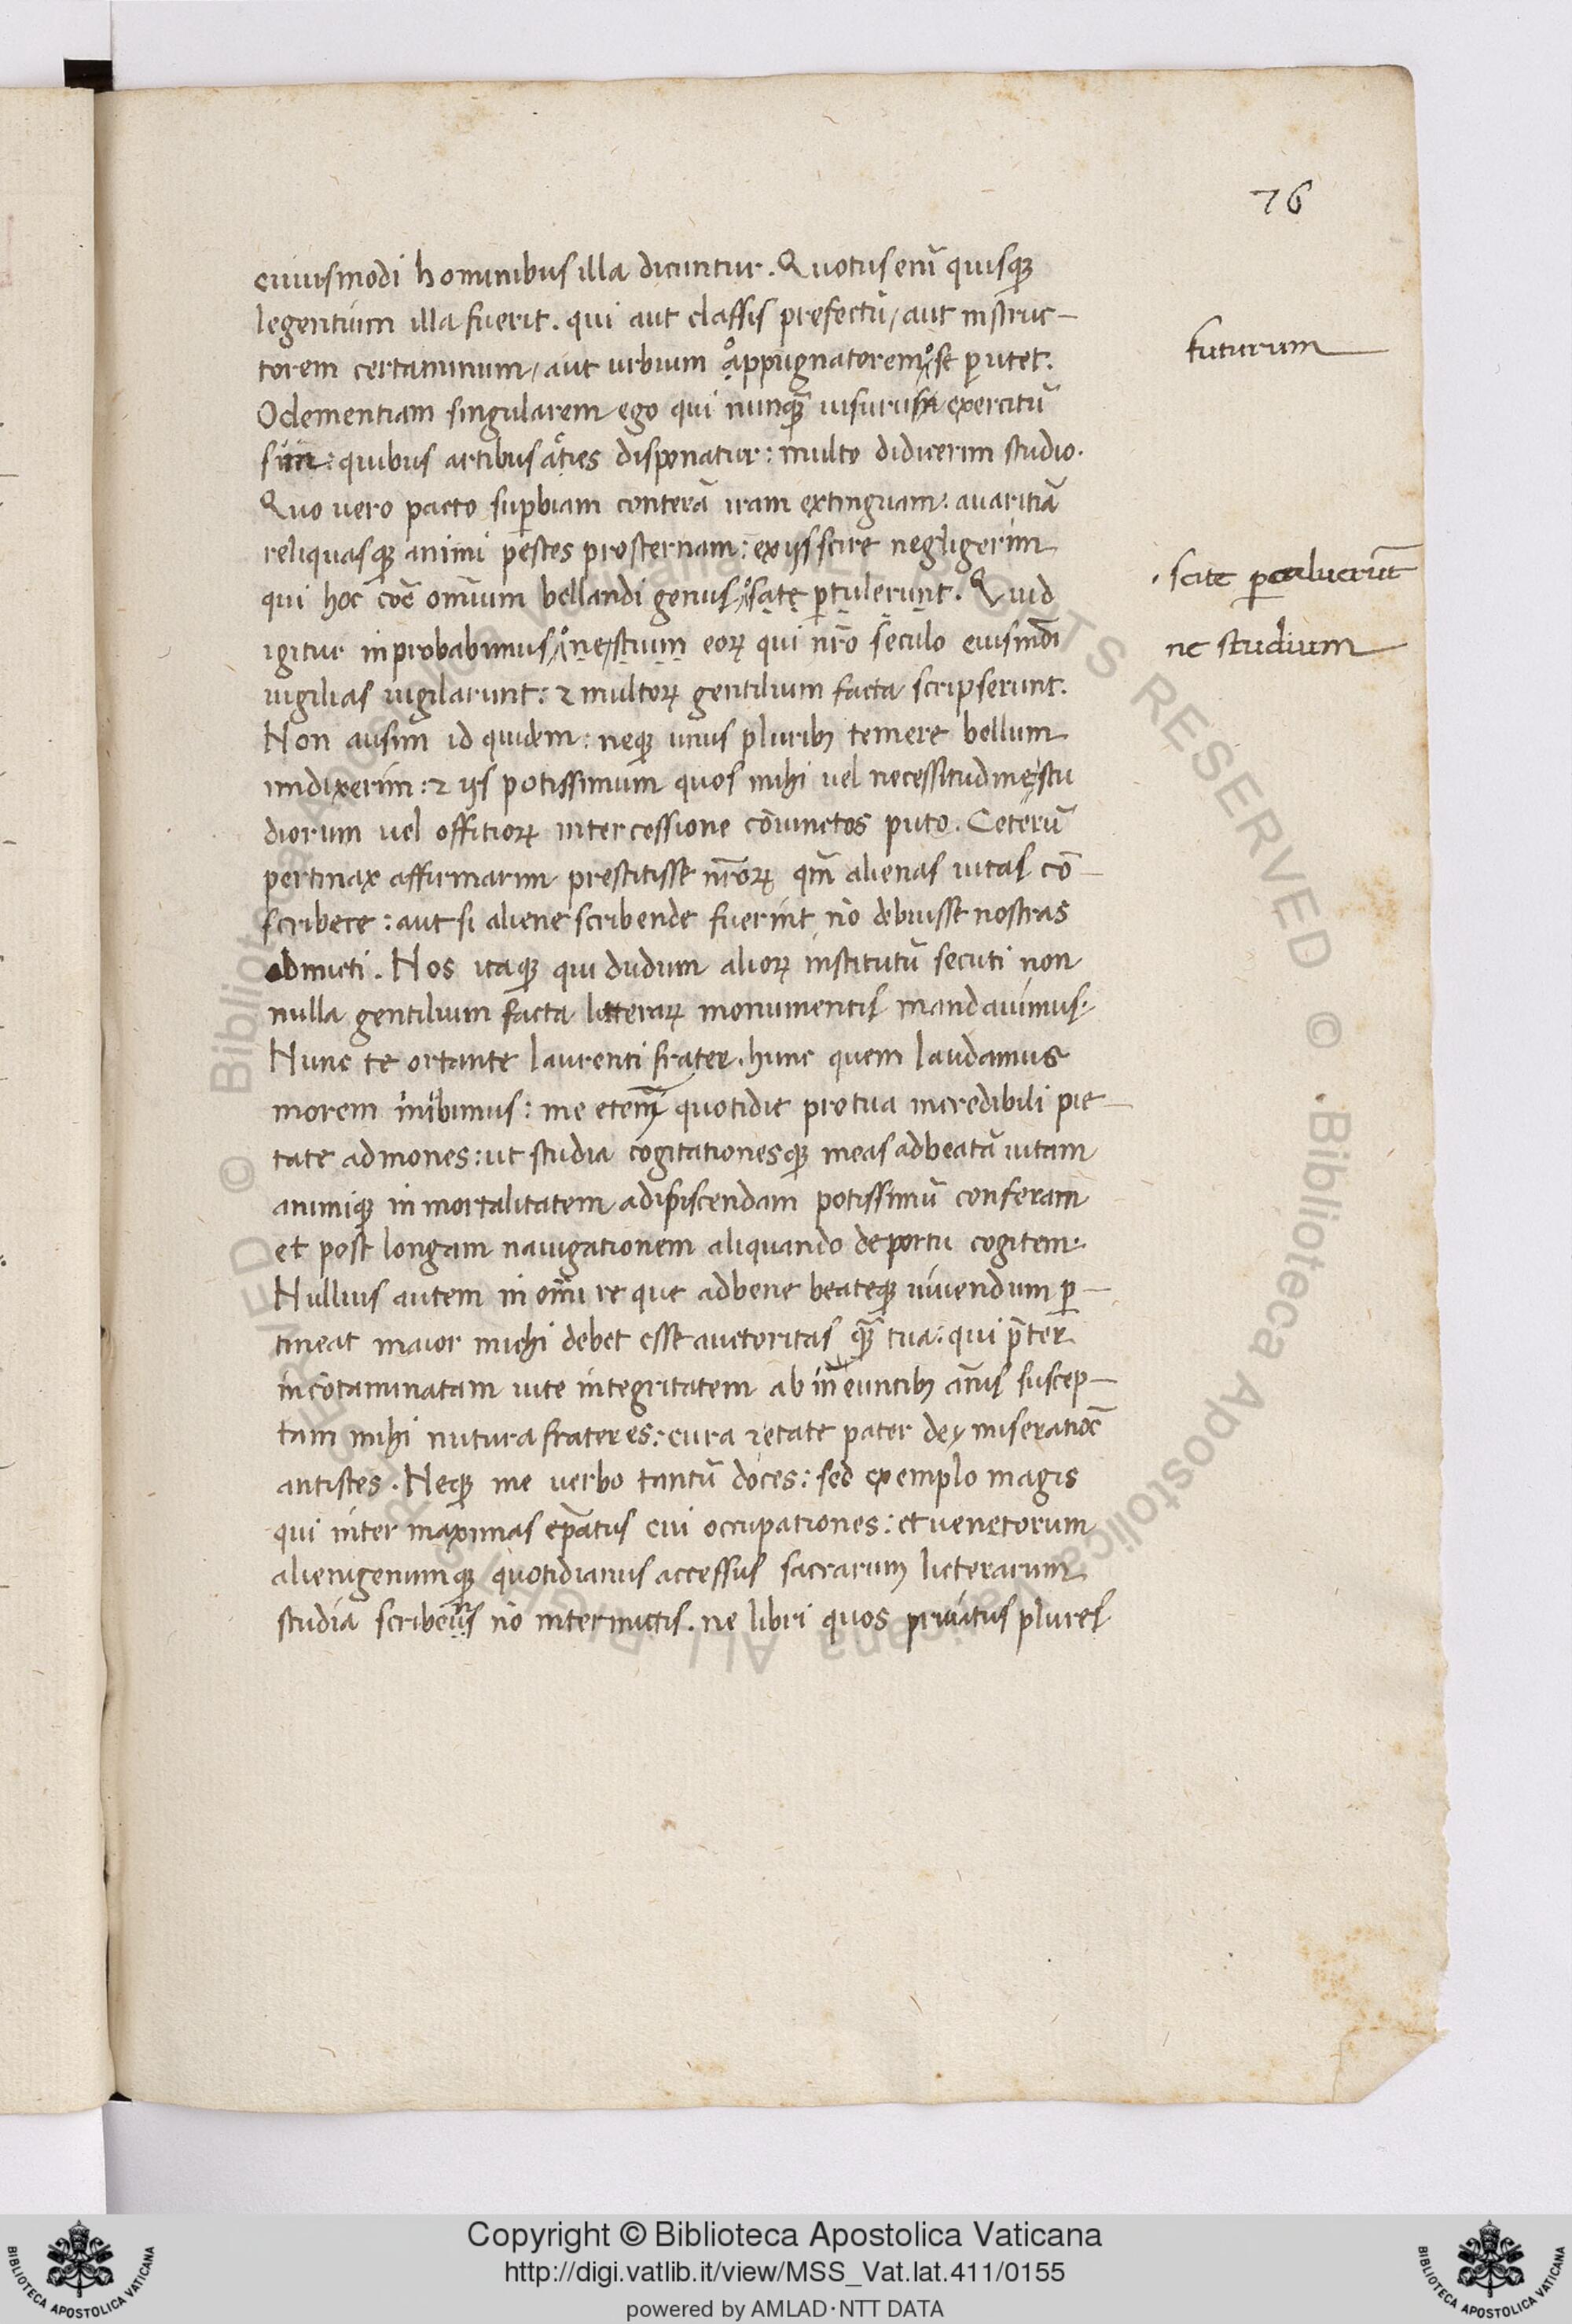 76
cuiusmodi hominibus illa dicuntur. Quotus enī quisqȝ
legentium illa fuerit. qui aut classis prefectū / aut instruc-
torem certaminum / aut urbium oppugnatorem se putet.
futurum
O clementiam singularem ego qui nunqȝ̄ uisurum exercitū
sim: quibus artibus aties disponatur: multo didicerim studio.
Quo uero pacto suꝑbiam conterā iram extinguam: avaritiā
reliquasqȝ animi pestes prosternam: ex iis scire negligerim
qui hoc cōe omīum bellandi genus sate ꝑtulerunt. Quid
scite percaluerūt
igitur inprobabimus ne stium eoꝝ qui nr̄o seculo eiusmōi
ne studium
uigilias uigilarunt: ⁊ multoꝝ gentilium facta scripserunt.
Non ausim id quidem: neqȝ unus pluribꝫ temere bellum
indixerim: ⁊ iis potissimum quos mihi uel necessitudine stu
diorum uel offitioꝝ intercessione cōiunctos puto. Ceterū
pertinax affirmarim prestitisse nr̄oꝝ qm̄ alienas uitas cō-
scribere: aut si aliene scribende fuerint nō debuisse nostras
obmicti. Nos itaqȝ qui dudum alioꝝ institutū secuti non
nulla gentilium facta litteraꝝ monumentis mandauimus.
Nunc te ortante laurenti frater. hunc quem laudamus
morem inibimus: me etenī quotidie pro tua incredibili pie-
tate admones: ut studia cogitationesqȝ meas ad beatā uitam
animiqȝ inmortalitatem adipiscendam potissimū conferam
et post longam nauigationem aliquando de portu cogitem.
Nullius autem in om̄i re que ad bene beateqȝ uiuendum ꝑ-
tineat maior michi debet esse auctoritas qȝ̄ tua: qui p̄ter
incōtaminatam uite integritatem ab ineuntibꝫ an̄is suscep-
tam mihi natura frater es: cura ⁊ etate pater dei miseratiōe
antistes. Neqȝ me uerbo tantū doces: sed exemplo magis
qui inter maximas ep̄atus cui occupationes: et uenetorum
alienigenumqȝ quotidianus accessus sacrarum licterarum
studia nō intermictis. ne libri quos priuatus plures
Copyright © Biblioteca Apostolica Vaticana
http://digi.vatlib.it/view/MSS_Vat.lat.411/0155
powered by AMLAD·NTT DATA